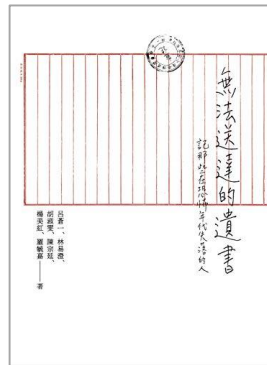 無法送達的遺書
記那些在恐怖年代失落的人
呂蒼一、林易澄、
胡淑雯、陳宗延、
楊美紅、羅毓嘉——著